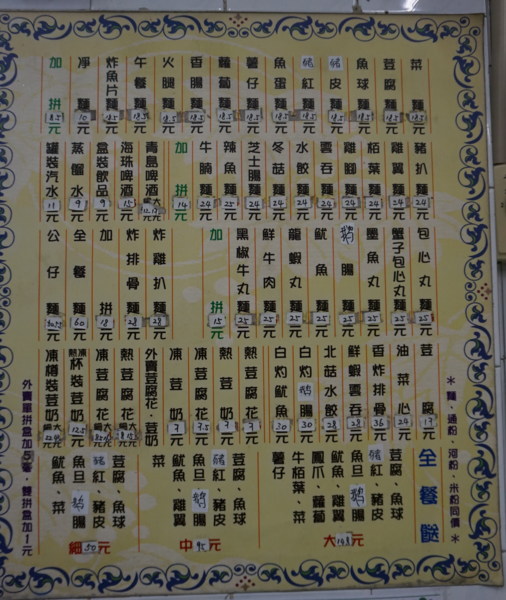 菜麵 18.5元
荳腐麵 18.5元
魚球麵 18.5元
豬皮麵 18.5元
豬紅麵 18.5元
魚蛋麵 18.5元
薯仔麵 18.5元
蘿蔔麵 18.5元
香腸麵 18.5元
火腿麵 18.5元
午餐麵 18.5元
炸魚片麵 18.5元
淨麵 10元
加拼 8.5元
豬扒麵 24元
雞翼麵 24元
栢葉麵 24元
雞腳麵 24元
雲吞麵 24元
水餃麵 24元
冬菇麵 24元
芝士腸麵 24元
辣魚麵 25元
牛腩麵 24元
加拼 14元
青島啤酒
海珠啤酒 15元
盒裝飲品 9元
蒸餾水 9元
罐裝汽水 11元
包心丸麵 25元
蟹子包心丸麵 25元
墨魚丸麵 25元
鵝腸麵 25元
魷魚麵 25元
龍蝦丸麵 25元
鮮牛肉麵 25元
黑椒牛丸麵 25元
加拼 15元
炸雞扒麵 28元
炸排骨麵 28元
加拼 18元
全餐麵 60元
公仔麵
荳腐 17元
油菜心 24元
香炸排骨 36元
鮮蝦雲吞 28元
北菇水餃 28元
白灼鵝腸 30元
白灼魷魚 30元
熱荳腐花 7元
熱荳奶 7元
凍荳腐花 7.5元
凍荳奶 7元
外賣荳腐花、荳奶
熱荳腐花
凍荳腐花
凍熱杯裝荳奶 12.5元
凍樽裝荳奶
＊麵、通粉、河粉、米粉同價＊
全餐餸
荳腐、魚球
豬紅、豬皮
魚旦、鵝腸
魷魚、雞翼
鳳爪、蘿蔔
牛栢葉、菜
薯仔
大 元
荳腐、魚球
豬紅、豬皮
魚旦、鵝腸
魷魚、雞翼
菜
中 元
荳腐、魚球
豬紅、豬皮
魚旦、鵝腸
魷魚、菜
細 50元